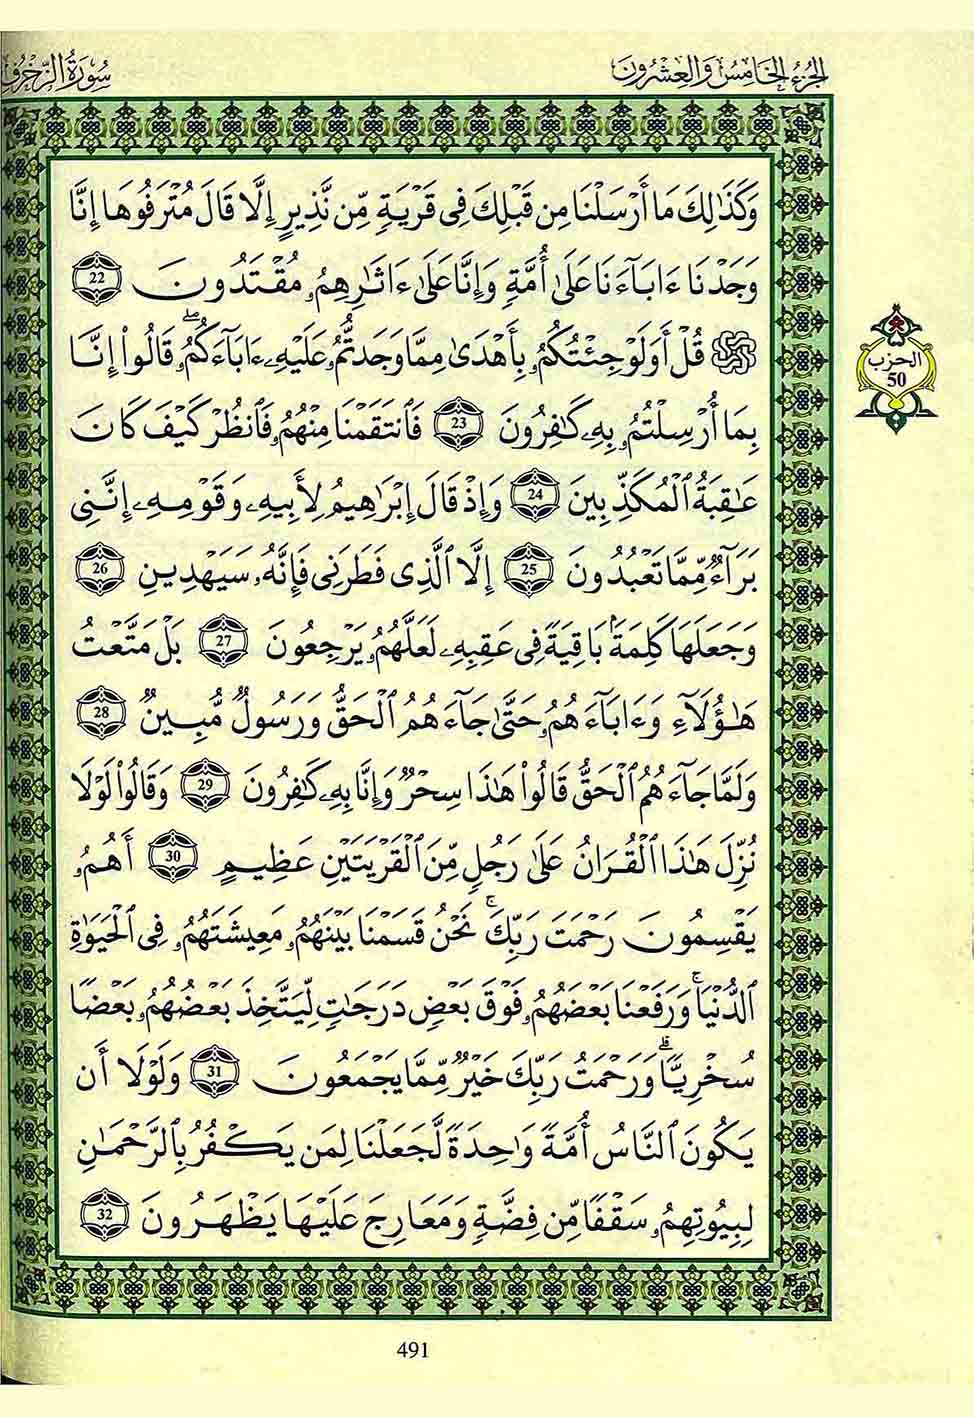 الجزء الخامس والعشرون
سورة الزخرف
وَكَذَٰلِكَ مَا أَرْسَلْنَا مِن قَبْلِكَ فِى قَرْيَةٍ مِّن نَّذِيرٍ إِلَّا قَالَ مُتْرَفُوهَا إِنَّا
وَجَدْنَا ءَابَآءَنَا عَلَىٰ أُمَّةٍ وَإِنَّا عَلَىٰ ءَاثَٰرِهِمُۥ مُقْتَدُونَ 22
۞ قُلْ أَوَلَوْ جِئْتُكُمُۥ بِأَهْدَىٰ مِمَّا وَجَدتُّمُۥ عَلَيْهِۦ ءَابَآءَكُمُۥۖ قَالُوا۟ إِنَّا
بِمَا أُرْسِلْتُمُۥ بِهِۦ كَٰفِرُونَ 23 فَٱنتَقَمْنَا مِنْهُمُۥ فَٱنظُرْ كَيْفَ كَانَ
عَٰقِبَةُ ٱلْمُكَذِّبِينَ 24 وَإِذْ قَالَ إِبْرَٰهِيمُ لِأَبِيهِۦ وَقَوْمِهِۦ إِنَّنِى
بَرَآءٌ مِّمَّا تَعْبُدُونَ 25 إِلَّا ٱلَّذِى فَطَرَنِى فَإِنَّهُۥ سَيَهْدِينِ 26
وَجَعَلَهَا كَلِمَةَۢ بَاقِيَةً فِى عَقِبِهِۦ لَعَلَّهُمُۥ يَرْجِعُونَ 27 بَلْ مَتَّعْتُ
هَٰٓؤُلَآءِ وَءَابَآءَهُمُۥ حَتَّىٰ جَآءَهُمُ ٱلْحَقُّ وَرَسُولٌ مُّبِينٌ 28
وَلَمَّا جَآءَهُمُ ٱلْحَقُّ قَالُوا۟ هَٰذَا سِحْرٌ وَإِنَّا بِهِۦ كَٰفِرُونَ 29 وَقَالُوا۟ لَوْلَا
نُزِّلَ هَٰذَا ٱلْقُرَانُ عَلَىٰ رَجُلٍ مِّنَ ٱلْقَرْيَتَيْنِ عَظِيمٍ 30 أَهُمُۥ
يَقْسِمُونَ رَحْمَتَ رَبِّكَۚ نَحْنُ قَسَمْنَا بَيْنَهُمُۥ مَعِيشَتَهُمُۥ فِى ٱلْحَيَوٰةِ
ٱلدُّنْيَاۚ وَرَفَعْنَا بَعْضَهُمُۥ فَوْقَ بَعْضٍ دَرَجَٰتٍ لِّيَتَّخِذَ بَعْضُهُمُۥ بَعْضًا
سُخْرِيًّاۗ وَرَحْمَتُ رَبِّكَ خَيْرٌ مِّمَّا يَجْمَعُونَ 31 وَلَوْلَا أَن
يَكُونَ ٱلنَّاسُ أُمَّةً وَٰحِدَةً لَّجَعَلْنَا لِمَن يَكْفُرُ بِٱلرَّحْمَٰنِ
لِبِيُوتِهِمُۥ سَقْفًا مِّن فِضَّةٍ وَمَعَارِجَ عَلَيْهَا يَظْهَرُونَ 32
الحزب
50
491